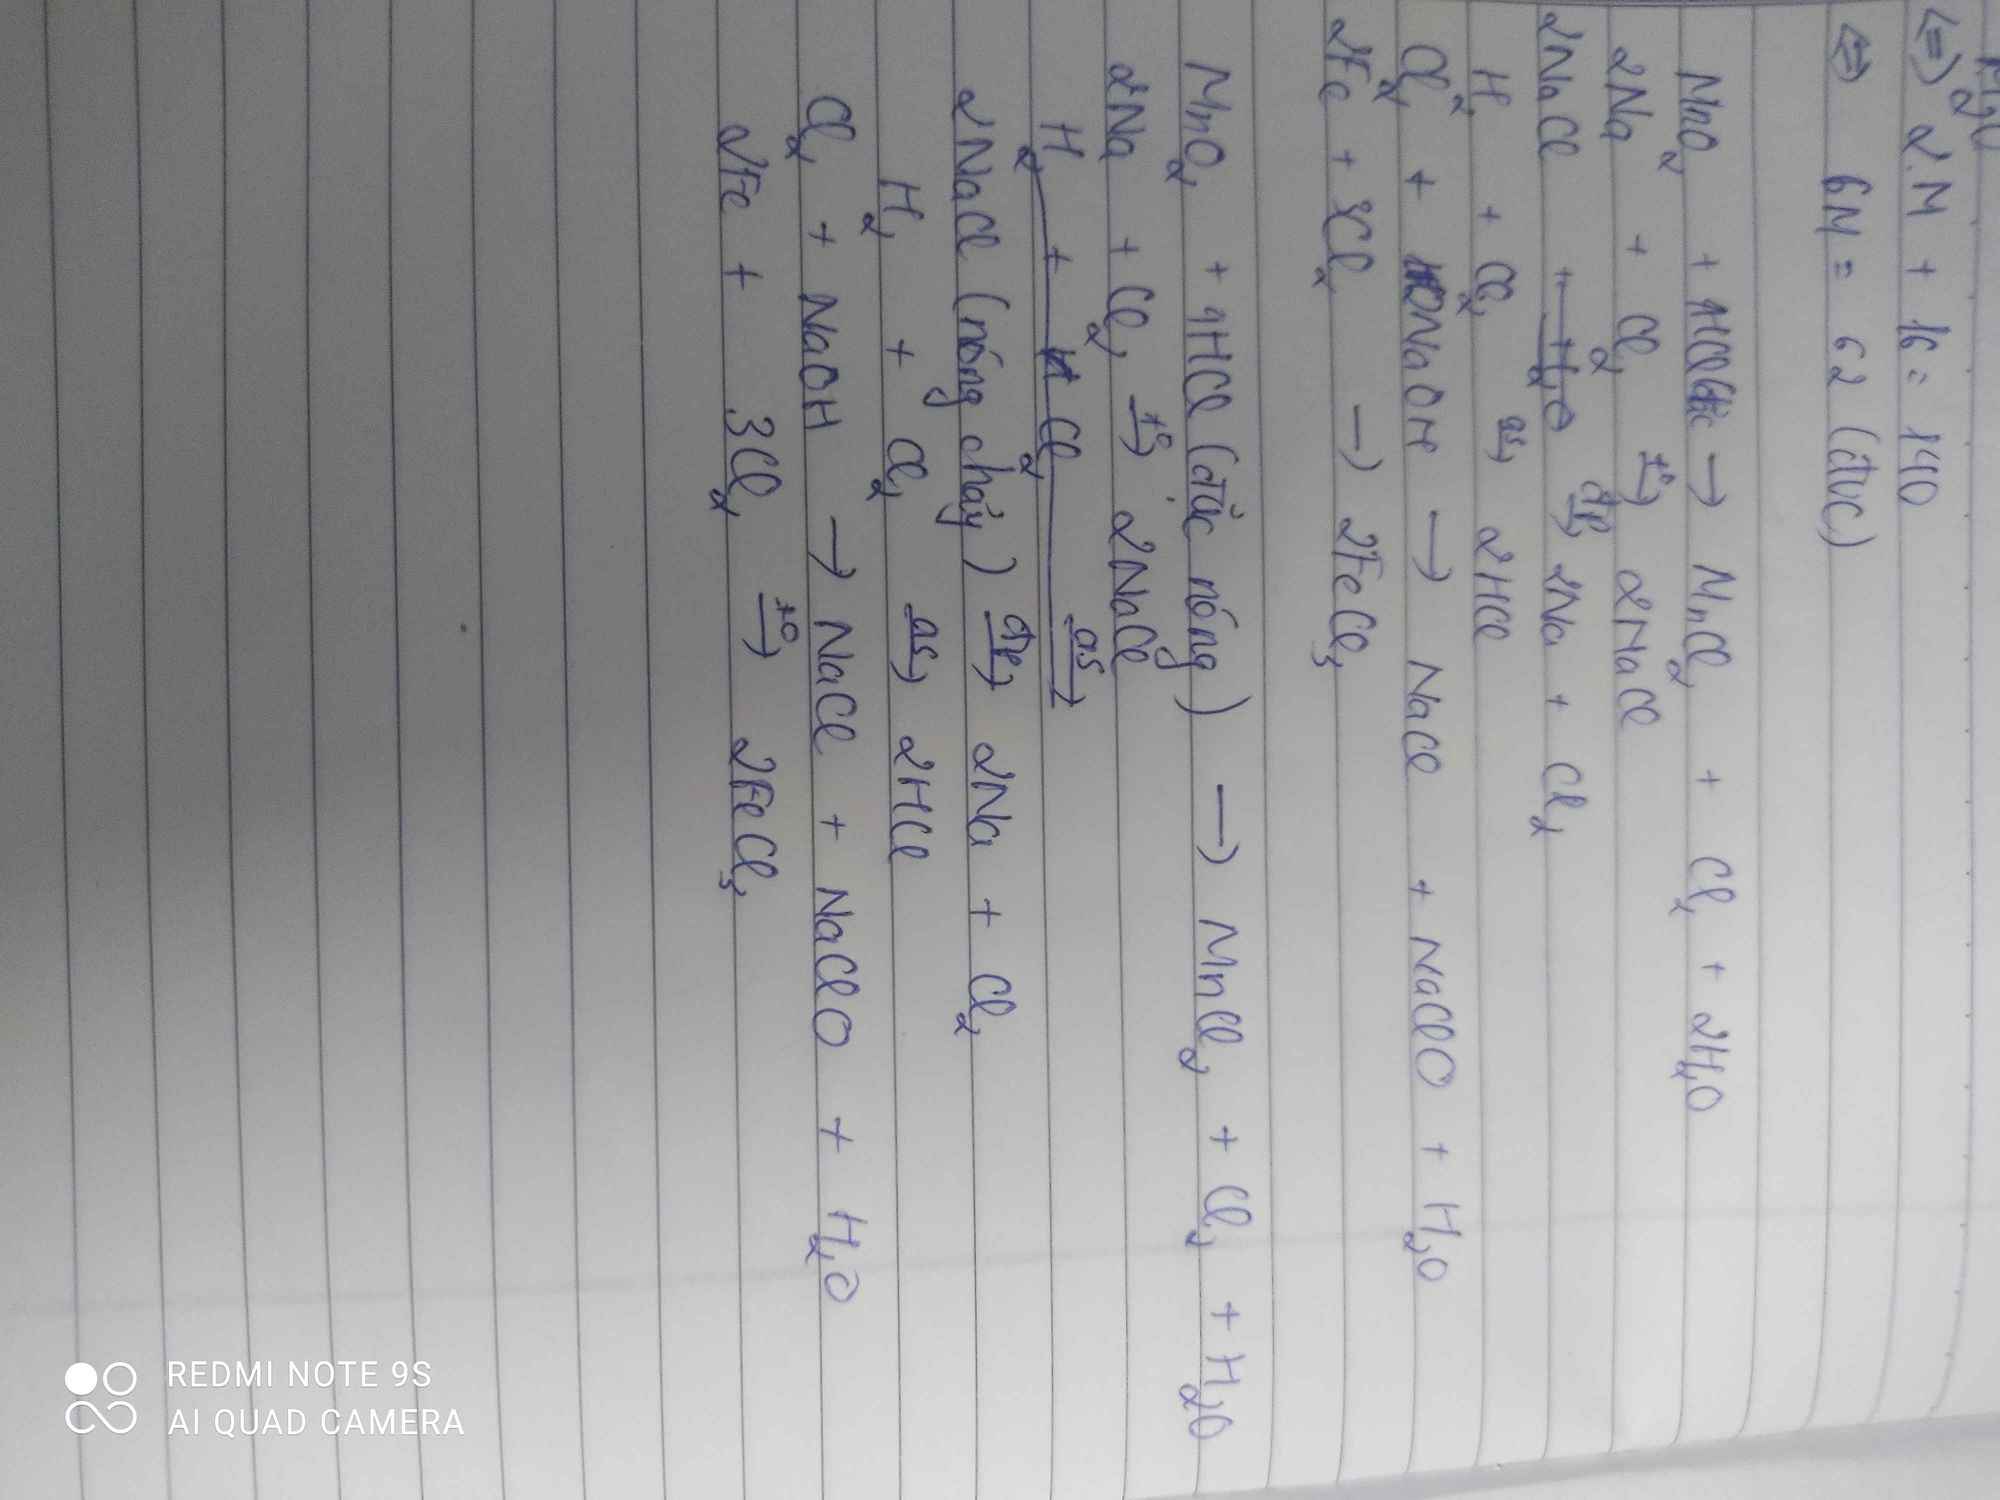 M₂O
<=> 2.M + 16 = 140
<=> 6M = 62 (đvC)
MnO₂ + 4HClđặc → MnCl₂ + Cl₂ + 2H₂O
2Na + Cl₂ t°→ 2NaCl
2NaCl + H₂O đp→ 2Na + Cl₂
H₂ + Cl₂ as→ 2HCl
Cl₂ + NaOH → NaCl + NaClO + H₂O
2Fe + 3Cl₂ → 2FeCl₃
MnO₂ + 4HCl (đặc nóng) → MnCl₂ + Cl₂ + H₂O
2Na + Cl₂ t°→ 2NaCl
H₂ + Cl₂ as→
2NaCl (nóng chảy) đp→ 2Na + Cl₂
H₂ + Cl₂ as→ 2HCl
Cl₂ + NaOH → NaCl + NaClO + H₂O
2Fe + 3Cl₂ t°→ 2FeCl₃
REDMI NOTE 9S
AI QUAD CAMERA